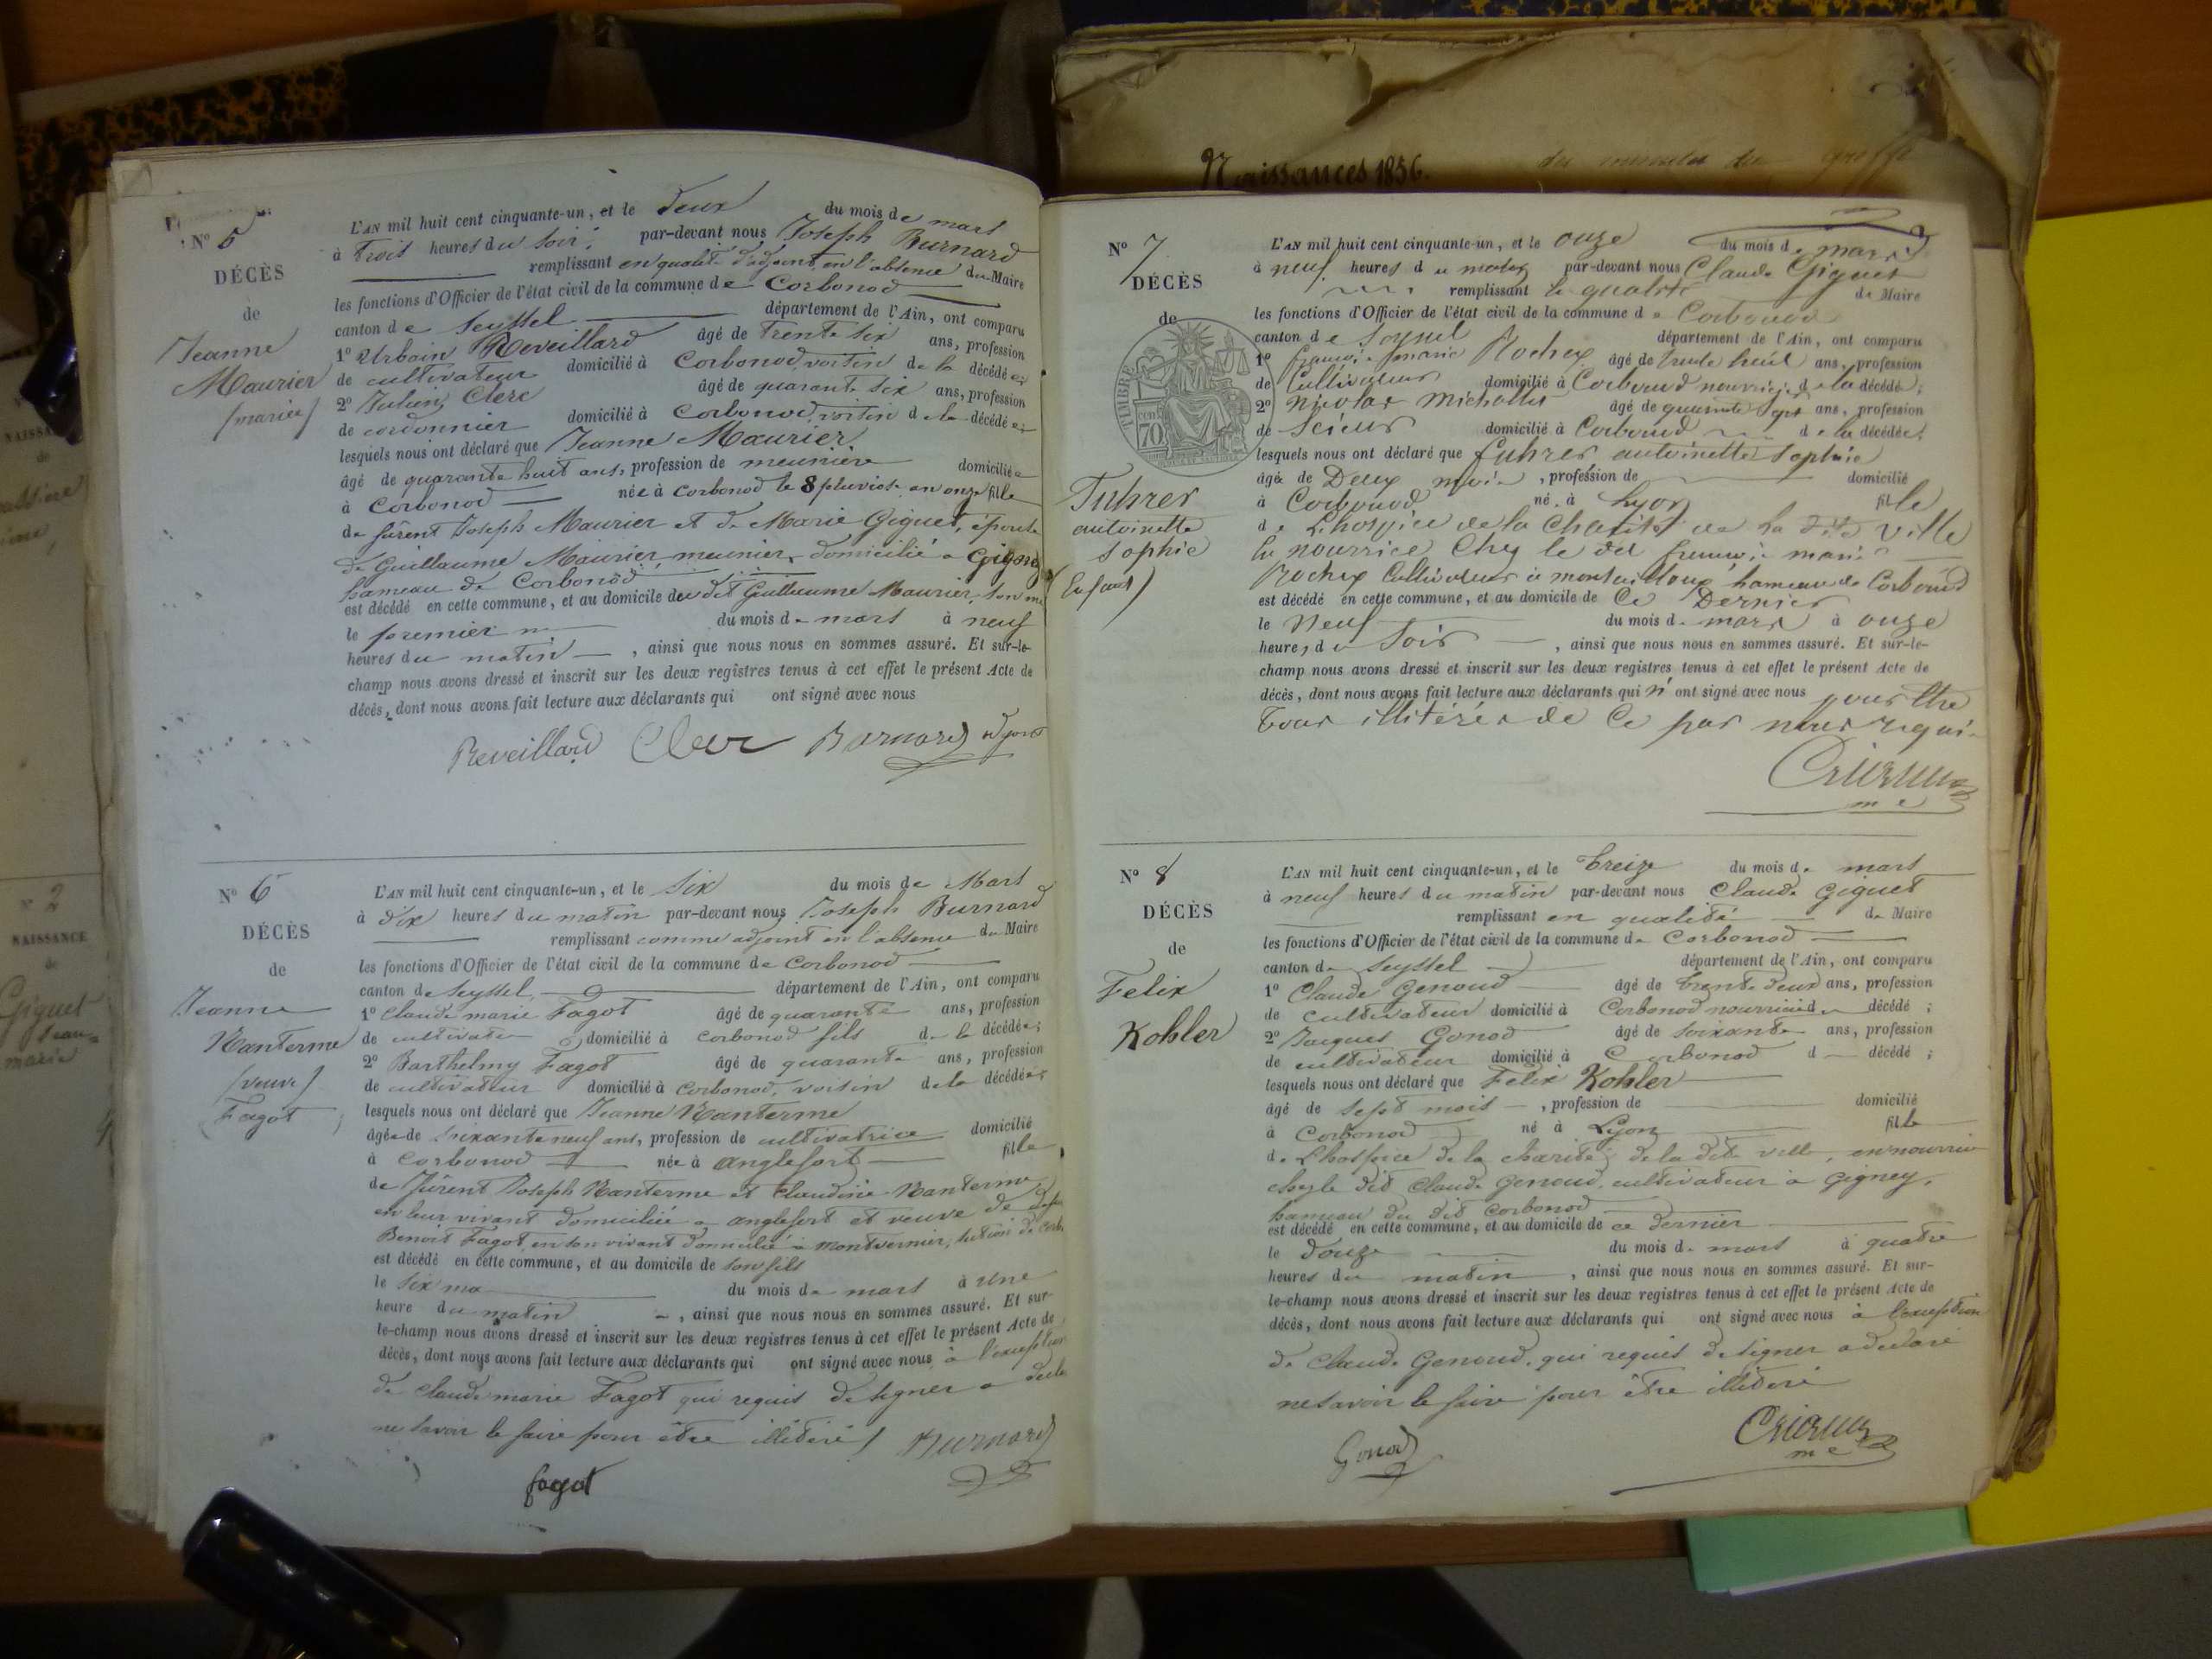 Naissances 1856.
N° 5
DÉCÈS
de
Jeanne
Maurier
(mariée)
L'AN mil huit cent cinquante-un, et le deux du mois de mars
à trois heures du soir, par-devant nous Joseph Burnard
remplissant en qualité d'adjoint en l'absence du Maire
les fonctions d'Officier de l'état civil de la commune de Corbonod
canton de Seyssel département de l'Ain, ont comparu
1° Urbain Reveillard âgé de trente six ans, profession
de cultivateur domicilié à Corbonod, voisin de la décédée;
2° Julien Clerc âgé de quarante six ans, profession
de cordonnier domicilié à Corbonod, voisin de la décédée;
lesquels nous ont déclaré que Jeanne Maurier
âgé de quarante huit ans, profession de meunière domiciliée
à Corbonod née à Corbonod le 8 pluviose an onze fille
de fûrent Joseph Maurier et de Marie Giguet, épouse
de Guillaume Maurier, meunier, domicilié a
hameau de Corbonod
est décédé en cette commune, et au domicile du dit Guillaume Maurier, son
le premier du mois de mars à neuf
heures du matin, ainsi que nous nous en sommes assuré. Et sur-le-
champ nous avons dressé et inscrit sur les deux registres tenus à cet effet le présent Acte de
décès, dont nous avons fait lecture aux déclarants qui ont signé avec nous
Reveillard Clerc Burnard
N° 6
DÉCÈS
de
Jeanne
Nanterme
(veuve)
Fagot
L'AN mil huit cent cinquante-un, et le six du mois de Mars
à dix heures du matin par-devant nous Joseph Burnard
remplissant comme adjoint en l'absence du Maire
les fonctions d'Officier de l'état civil de la commune de Corbonod
canton de Seyssel, département de l'Ain, ont comparu
1° Claude marie Fagot âgé de quarante ans, profession
de cultivateur domicilié à Corbonod fils de la décédée;
2° Barthelmy Fagot âgé de quarante ans, profession
de cultivateur domicilié à Corbonod, voisin de la décédée;
lesquels nous ont déclaré que Jeanne Nanterme
âgée de soixante neuf ans, profession de cultivatrice domicilié
à Corbonod née à anglefort fille
de fûrent Joseph Nanterme et Claudine Nanterme
en leur vivant domiciliés a anglefort et veuve de
Benoit Fagot, en son vivant domicilié à Montvernier, section de
est décédé en cette commune, et au domicile de son fils
le six du mois de mars à une
heure du matin, ainsi que nous nous en sommes assuré. Et sur-
le-champ nous avons dressé et inscrit sur les deux registres tenus à cet effet le présent Acte de
décès, dont nous avons fait lecture aux déclarants qui ont signé avec nous à l'exception
de Claude marie Fagot qui requis de signer a
ne savoir le faire pour être illitéré
Burnard
fagot
N° 7
DÉCÈS
de
TIMBRE
70
Fuhrer
antoinette
Sophie
(Enfant)
L'AN mil huit cent cinquante-un, et le onze du mois de mars
à neuf heures du matin par-devant nous Claude Giguet
remplissant la qualité de Maire
les fonctions d'Officier de l'état civil de la commune de Corbonod
canton de Seyssel département de l'Ain, ont comparu
1° françois marie Rochex âgé de trente huit ans, profession
de Cultivateur domicilié à Corbonod nourricier de la décédé;
2° Nicolas michallet âgé de quarante sept ans, profession
de Scieur domicilié à Corbonod de la décédée;
lesquels nous ont déclaré que fuhrer antoinette Sophie
âgé de Deux mois, profession de domicilié
à Corbonod né à Lyon fille
de L'hospice de la Charité de La dite ville
En nourrice Chez le dit françois marie
Rochex Cultivateur à hameau de Corbonod
est décédé en cette commune, et au domicile de Ce Dernier
le Neuf du mois de mars à onze
heures du Soir, ainsi que nous nous en sommes assuré. Et sur-le-
champ nous avons dressé et inscrit sur les deux registres tenus à cet effet le présent Acte de
décès, dont nous avons fait lecture aux déclarants qui n'ont signé avec nous pour être
tous illitérés de Ce par nous requis
N° 8
DÉCÈS
de
Felix
Kohler
L'AN mil huit cent cinquante-un, et le treize du mois de mars
à neuf heures du matin par-devant nous Claude Giguet
remplissant en qualité de Maire
les fonctions d'Officier de l'état civil de la commune de Corbonod
canton de Seyssel département de l'Ain, ont comparu
1° Claude Genoud âgé de trente deux ans, profession
de cultivateur domicilié à Corbonod nourricier du décédé;
2° Jacques Gonod âgé de soixante ans, profession
de cultivateur domicilié à Corbonod d décédé;
lesquels nous ont déclaré que Felix Kohler
âgé de sept mois, profession de domicilié
à Corbonod né à Lyon fils
de L'hospice de la charité de la dite ville, en nourrice
chez le dit Claude Genoud, cultivateur a Gigney,
hameau du dit Corbonod
est décédé en cette commune, et au domicile de ce dernier
le douze du mois de mars à quatre
heures du matin, ainsi que nous nous en sommes assuré. Et sur-
le-champ nous avons dressé et inscrit sur les deux registres tenus à cet effet le présent Acte de
décès, dont nous avons fait lecture aux déclarants qui ont signé avec nous à l'exception
de Claude Genoud, qui requis de signer a declaré
ne savoir le faire pour être illitéré
Gonod
N° 2
NAISSANCE
de
Giguet
Jean-
marie